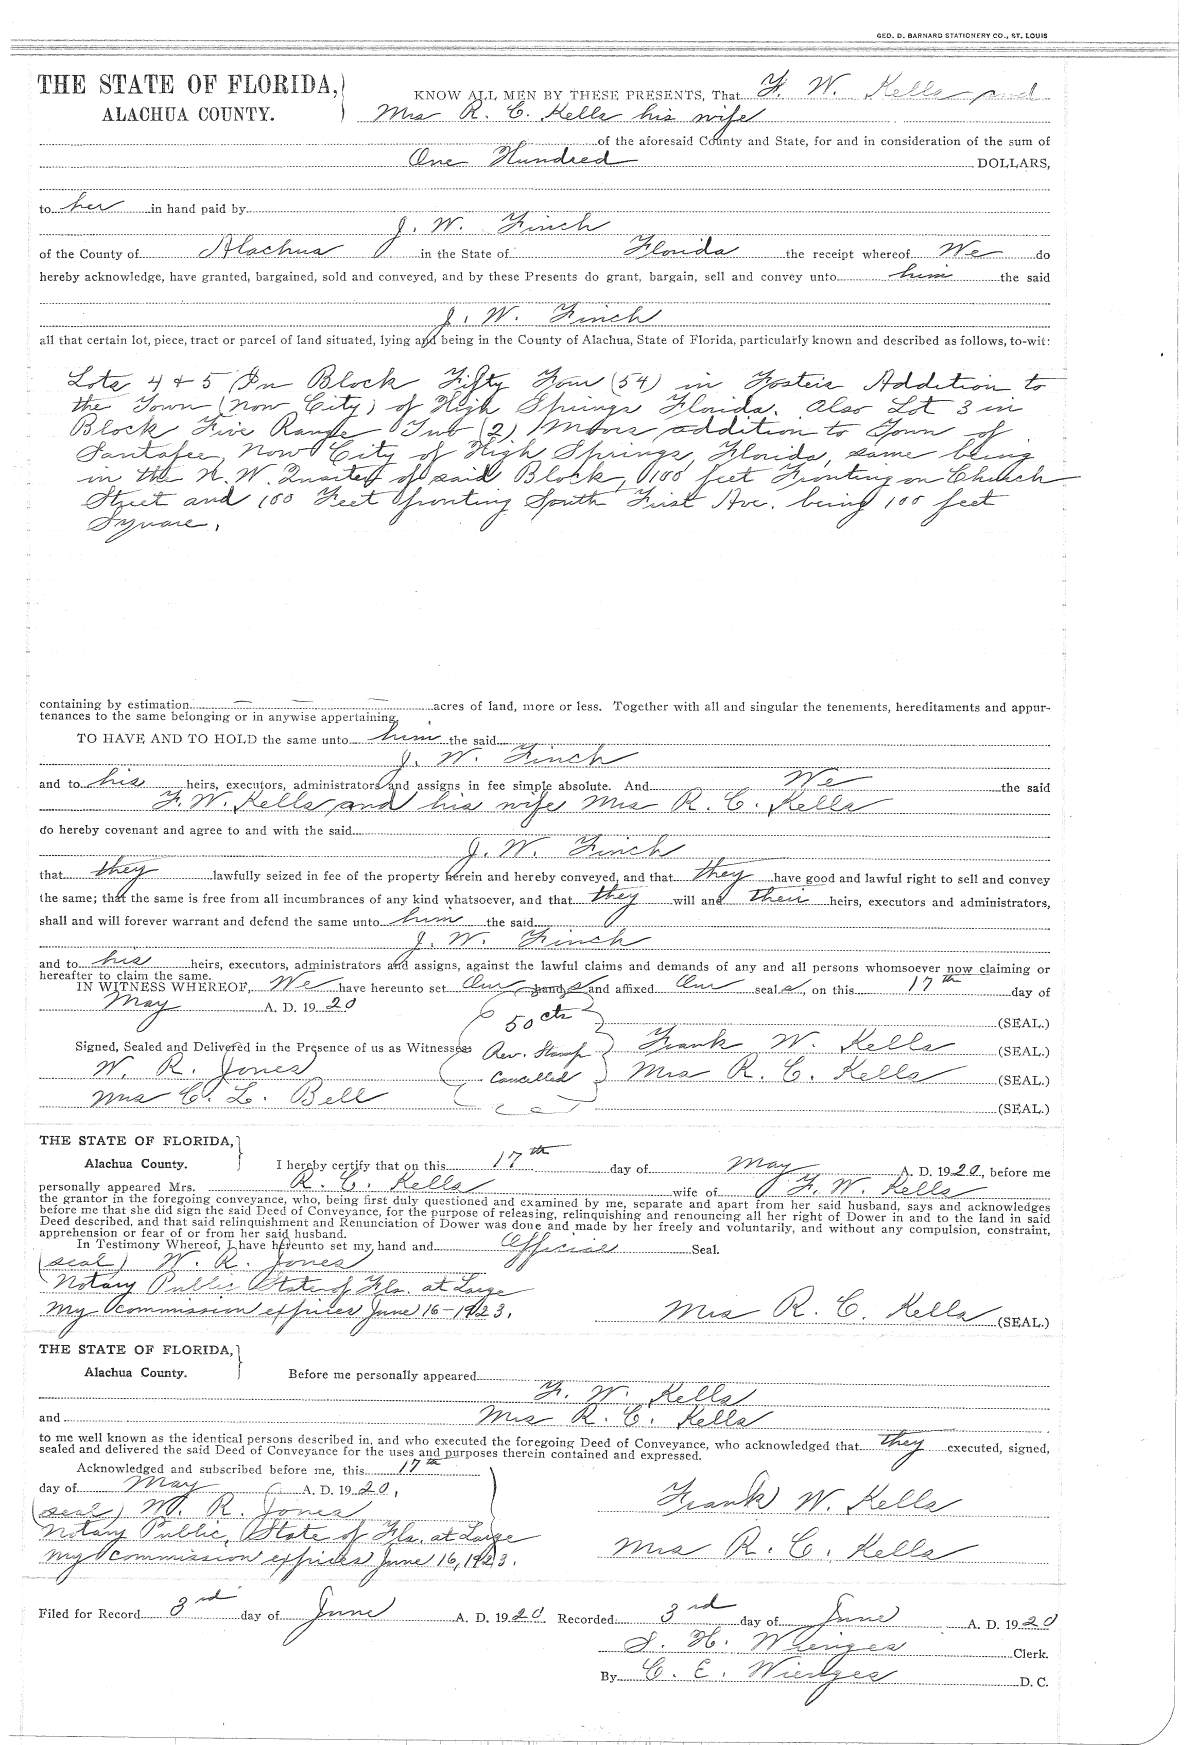 GEO. D. BARNARD STATIONERY CO., ST. LOUIS
THE STATE OF FLORIDA,
ALACHUA COUNTY.
KNOW ALL MEN BY THESE PRESENTS, That F. W. Kells and
Mrs R. C. Kells his wife
of the aforesaid County and State, for and in consideration of the sum of
One Hundred DOLLARS,
to her in hand paid by
J. W. Finch
of the County of Alachua in the State of Florida the receipt whereof We do
hereby acknowledge, have granted, bargained, sold and conveyed, and by these Presents do grant, bargain, sell and convey unto him the said
J. W. Finch
all that certain lot, piece, tract or parcel of land situated, lying and being in the County of Alachua, State of Florida, particularly known and described as follows, to-wit:
Lots 4 & 5 In Block Fifty Four (54) in Fosters Addition to
the Town (now City) of High Springs Florida. Also Lot 3 in
Block Five Range Two (2) Moors addition to Town of
Santafee, Now City of High Springs, Florida, same being
in the N. W. Quarter of said Block, 100 feet Fronting on Church
Street and 100 Feet fronting South First Ave. being 100 feet
Square.
containing by estimation acres of land, more or less. Together with all and singular the tenements, hereditaments and appur-
tenances to the same belonging or in anywise appertaining.
TO HAVE AND TO HOLD the same unto him the said
J. W. Finch
and to his heirs, executors, administrators and assigns in fee simple absolute. And We the said
F. W. Kells and his wife Mrs R. C. Kells
do hereby covenant and agree to and with the said
J. W. Finch
that they lawfully seized in fee of the property herein and hereby conveyed, and that they have good and lawful right to sell and convey
the same; that the same is free from all incumbrances of any kind whatsoever, and that they will and their heirs, executors and administrators,
shall and will forever warrant and defend the same unto him the said
J. W. Finch
and to his heirs, executors, administrators and assigns, against the lawful claims and demands of any and all persons whomsoever now claiming or
hereafter to claim the same.
IN WITNESS WHEREOF, We have hereunto set Our hands and affixed Our seals, on this 17th day of
May A. D. 1920
50 cts (SEAL.)
Signed, Sealed and Delivered in the Presence of us as Witnesses: Rev. Stamp Frank W. Kells (SEAL.)
W. R. Jones Cancelled Mrs R. C. Kells (SEAL.)
Mrs C. L. Bell (SEAL.)
THE STATE OF FLORIDA,
Alachua County. I hereby certify that on this 17th day of May A. D. 1920, before me
personally appeared Mrs. R. C. Kells wife of F. W. Kells
the grantor in the foregoing conveyance, who, being first duly questioned and examined by me, separate and apart from her said husband, says and acknowledges
before me that she did sign the said Deed of Conveyance, for the purpose of releasing, relinquishing and renouncing all her right of Dower in and to the land in said
Deed described, and that said relinquishment and Renunciation of Dower was done and made by her freely and voluntarily, and without any compulsion, constraint,
apprehension or fear of or from her said husband.
In Testimony Whereof, I have hereunto set my hand and Official Seal.
(seal) W. R. Jones
Notary Public State of Fla. at Large
My commission expires June 16-1923. Mrs R. C. Kells (SEAL.)
THE STATE OF FLORIDA,
Alachua County. Before me personally appeared
F. W. Kells
and Mrs R. C. Kells
to me well known as the identical persons described in, and who executed the foregoing Deed of Conveyance, who acknowledged that they executed, signed,
sealed and delivered the said Deed of Conveyance for the uses and purposes therein contained and expressed.
Acknowledged and subscribed before me, this 17th
day of May A. D. 1920,
(seal) W. R. Jones Frank W. Kells
Notary Public, State of Fla. at Large
My commission expires June 16, 1923. Mrs R. C. Kells
Filed for Record 3rd day of June A. D. 1920 Recorded 3rd day of June A. D. 1920
S. H. Wienges Clerk.
By C. E. Wienges D. C.